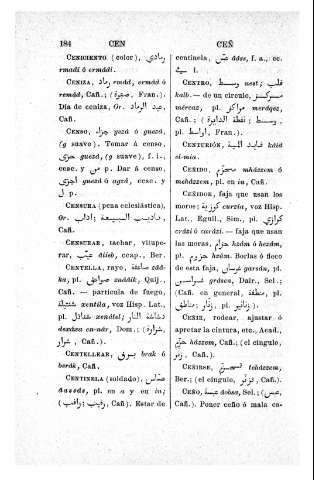 184 CEN
CENICIENTO (color), رمادي
rmadi ó ermádi.
CENIZA, رماد rmád, ermád ó
remád, Cañ.; (صفوة, Fran.)
Dia de ceniza, Gr. عيد الرماد
Cañ.
CENSO, جزاء gezá ó guezá,
(g suave). Tomar á censo,
جزى guezá, (g suave), f. i.,
cesc. y من p. Dar á censo,
اجزى guezá ó agzá, cesc. y
ل p.
CENSURA (pena eclesiástica),
Gr. تاديب البيعة; اداب,
Cañ.
CENSURAR, tachar, vitupe-
rar, عيّب áiieb, ceap., Ber.
CENTELLA, rayo, صاعقة
ka, pl. صواعق zuádik, Quij.,
Cañ. — particula de fuego,
شنتيلة xentila, voz Hisp. Lat.,
pl. شنادل xenátel; نشاشة النار
dexáxa en-nár, Dom.; (شرارة,
شرار, Cañ.).
CENTELLEAR, برق brak ó
barák, Cañ.
CENTINELA (soldado), عسّاس
áassás, pl. en a y en in;
(رقيب y راقب, Cañ.). Estar de
CEÑ
centinela, عسّ áăss, f. a., cc.
على s.
CENTRO, وسط uest; قلب
kalb. — de un círculo, مركز
mércaz, pl. مراكز merâqez,
Cañ.; (نقطة الدايرة; وسط,
pl. اواسط, Fran.).
CENTURION, قايد المية káid
el-mia.
CEÑIDO, محزّم mházzem ó
meházzem, pl. en in, Cañ.
CEÑIDOR, faja que usan los
moros, كرزية curzia, voz Hisp.
Lat., Eguil., Sim., pl. كرازي
crázi ó carázi. — faja que usan
las moras, حزام hzám ó hezám,
pl. حزوم. Borlas ó fleco
de esta faja, pl.
grásen, Dair., Sel.;
(Cañ. en general, منطقة, pl.
مناطق; زنّار, pl. زنانير).
CEÑIR, rodear, ajustar ó
apretar la cintura, etc., Acad.,
حزّم házzem, Cañ.; (el cíngulo,
زنّر, Cañ.).
CEÑIRSE, تحزّم tehàzzem,
Ber.; (el cíngulo, تزنّر, Cañ.).
CEÑO, عبسة âabsa, Sel.; (عبس,
Cañ.). Poner ceño ó mala ca-